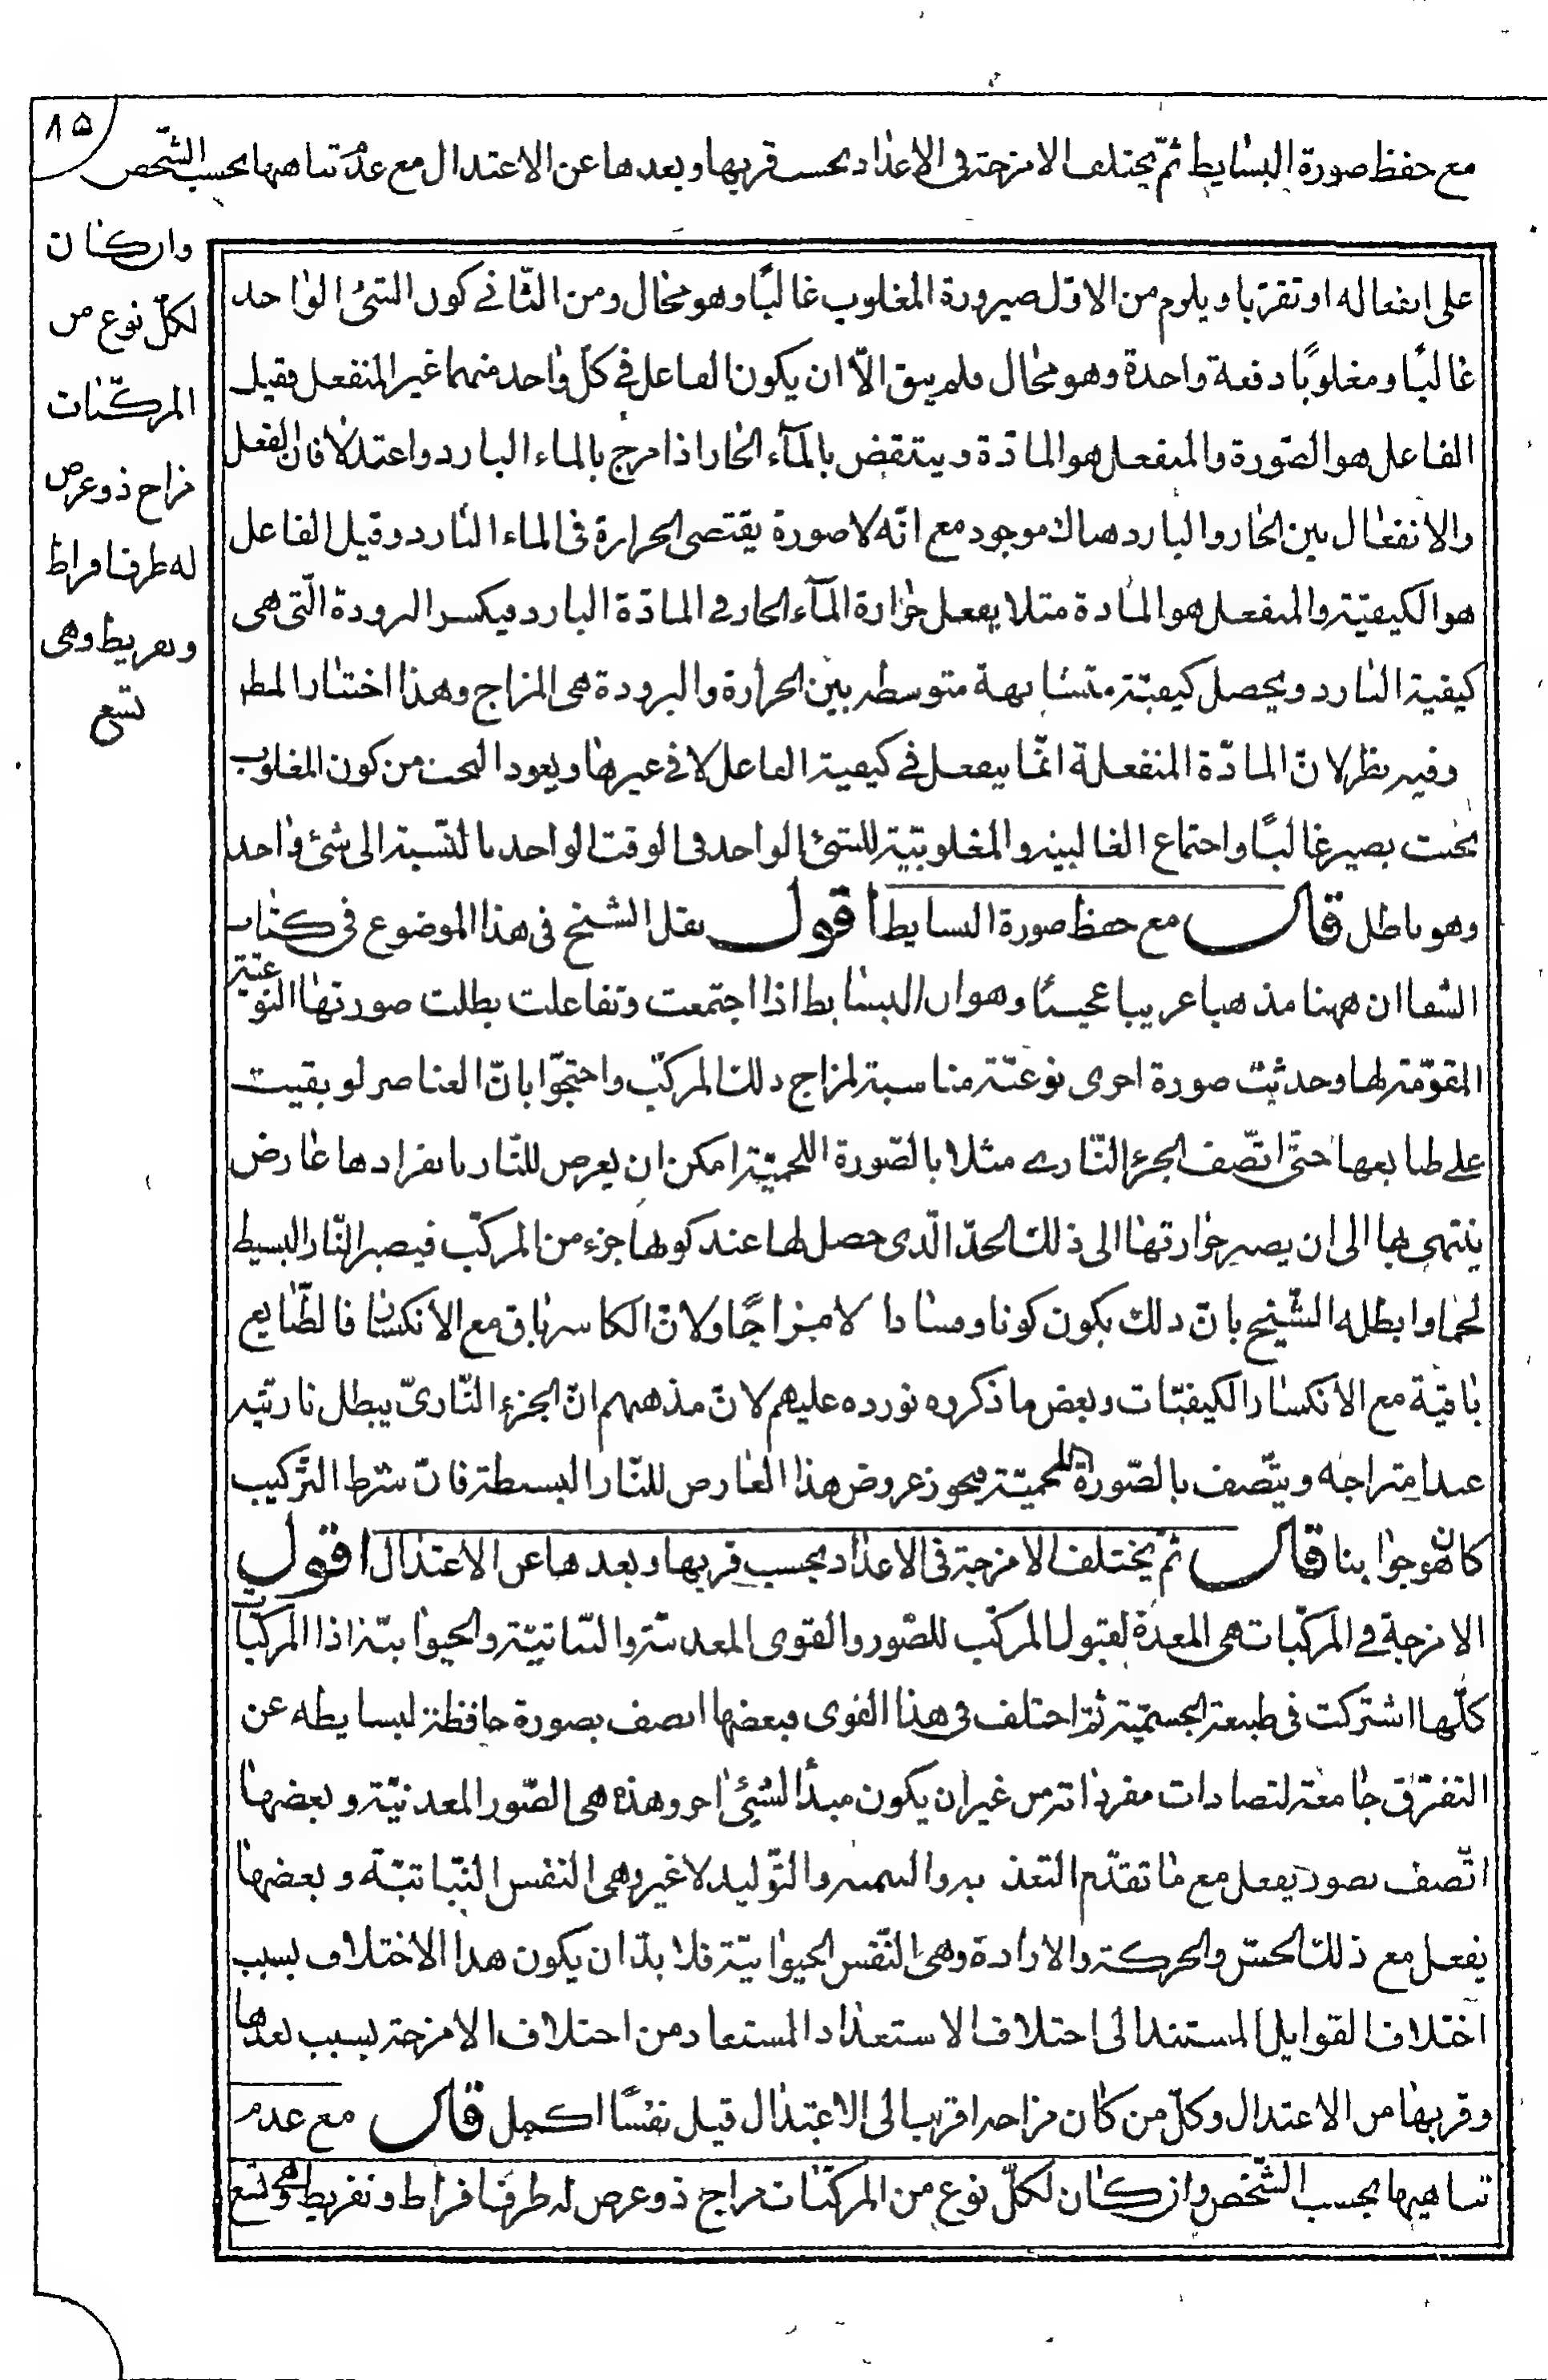 ٨٥
مع حفظ صورة البسايط ثمّ يختلف الامزجة في الاعداد بحسب قربها وبعدها عن الاعتدال مع عدم تناهيها بحسب الشّخص
وان كان
لكلّ نوع من
المركّبات
مزاج ذو عرض
له طرفا افراط
وتفريط وهى
تسع
على انفعاله او تقربا ويلزم من الاوّل صيرورة المغلوب غالبًا وهو محال ومن الثّاني كون الشئ الواحد
غالبًا ومغلوبًا دفعة واحدة وهو محال فلم يبق الّا ان يكون الفاعل في كلّ واحد منهما غير المنفعل فقيل
الفاعل هو الصّورة والمنفعل هو المادّة وينتقض بالمآء الحار اذا مزج بالماء البارد واعتدلا فان الفعل
والانفعال بين الحار والبارد هناك موجود مع انّه لا صورة يقتضى الحرارة في الماء البارد وقيل الفاعل
هو الكيفيّة والمنفعل هو المادة مثلا يفعل حرارة المآء الحار في المادّة البارد فيكسر البرودة الّتى هى
كيفية البارد ويحصل كيفيّة متشابهة متوسطه بين الحرارة والبرودة هى المزاج وهذا اختيار المط
وفيه نظر لانّ المادّة المنفعلة انّما ينفعل في كيفية الفاعل لا في غيرها ويعود البحث من كون المغلوب
بحيث يصير غالبًا واجتماع الغالبية والمغلوبيّة للشئ الواحد في الوقت الواحد بالنّسبة الى شئ واحد
وهو باطل قال مع حفظ صورة البسايط اقول نقل الشيخ في هذا الموضوع في كتاب
الشفا ان ههنا مذهبا غريبا عجيبًا وهو ان البسايط اذا اجتمعت وتفاعلت بطلت صورتها النوعيّة
المقوّمة لها وحدثت صورة اخرى نوعيّة مناسبة لمزاج ذلك المركّب واحتجّوا بانّ العناصر لو بقيت
على طبايعها حتّى اتّصف الجزء النّارى مثلا بالصّورة اللحميّة امكن ان يعرض للنّار بانفرادها عارض
ينتهى بها الى ان يصير حرارتها الى ذلك الحدّ الّذى حصل لها عند كونها جزء من المركّب فيصير النّار البسيط
لحما وابطله الشّيخ بانّ ذلك يكون كونا وفسادا لا مزاجًا ولانّ الكاسر باق مع الانكسار فالطّبايع
باقية مع الانكسار الكيفيّات وبعض ما ذكروه نورده عليهم لانّ مذهبهم انّ الجزء النّارىّ يبطل ناريّته
عند امتزاجه ويتّصف بالصّورة اللحميّة فيجوز عروض هذا العارض للنّار البسيطة فانّ شرط التّركيب
كان هو جوابنا قال ثمّ يختلف الامزجة في الاعداد بحسب قربها وبعدها عن الاعتدال اقول
الامزجة في المركّبات هى المعدة لقبول المركّب للصّور والقوى المعدنيّة والنباتيّة والحيوانيّة اذا المركّبات
كلّها اشتركت في طبيعة الجسميّة ثمّ اختلف في هذا القوى فبعضها اتصف بصورة حافظة لبسايطه عن
التفرّق جامعة لتضادات مفرداته من غير ان يكون مبدأ لشئ اخر وهذه هى الصّور المعدنيّة وبعضها
اتّصف بصور يفعل مع ما تقدّم التغذيه والتنميه والتّوليد لا غير وهى النّفس النّباتيّة وبعضها
يفعل مع ذلك الحسّ والحركة والارادة وهى النّفس الحيوانيّة فلا بدّ ان يكون هذا الاختلاف بسبب
اختلاف القوابل المستند الى اختلاف الاستعداد المستفاد من اختلاف الامزجة بسبب بعدها
وقربها من الاعتدال وكلّ من كان مزاجه اقرب الى الاعتدال قبل نفسًا اكمل قال مع عدم
تناهيها بحسب الشّخص وان كان لكلّ نوع من المركّبات مزاج ذو عرض له طرفا افراط وتفريط وهى تسع